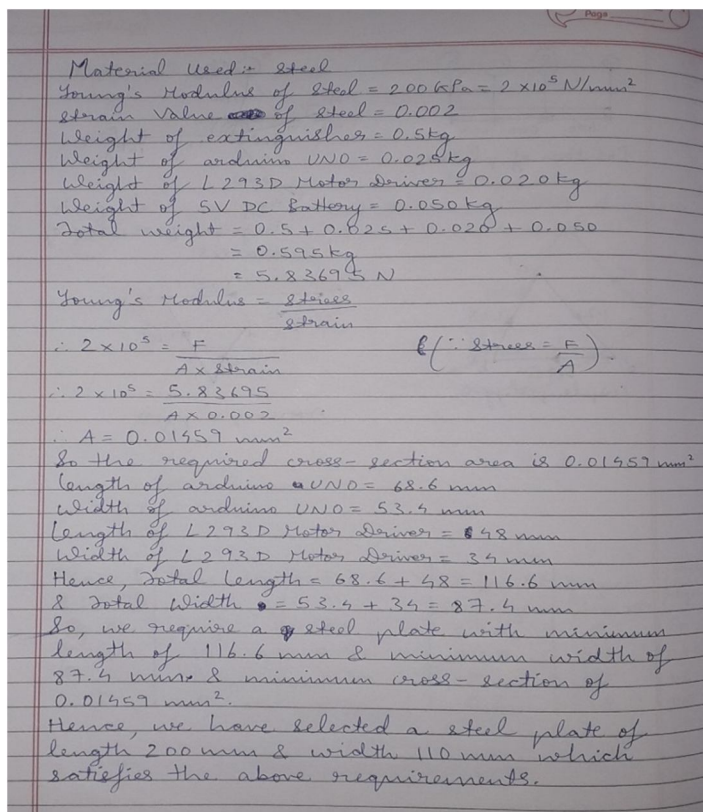 Page
Material Used :- Steel
Young's Modulus of Steel = 200 GPa = 2 × 10⁵ N/mm²
Strain Value of Steel = 0.002
Weight of extinguisher = 0.5 kg
Weight of arduino UNO = 0.025 kg
Weight of L293D Motor Driver = 0.020 kg
Weight of 5V DC Battery = 0.050 kg
Total weight = 0.5 + 0.025 + 0.020 + 0.050
= 0.595 kg
= 5.83695 N
Young's Modulus = Stress / Strain
∴ 2 × 10⁵ = F / A × Strain (∵ Stress = F / A)
∴ 2 × 10⁵ = 5.83695 / A × 0.002
∴ A = 0.01459 mm²
So the required cross-section area is 0.01459 mm²
Length of arduino UNO = 68.6 mm
Width of arduino UNO = 53.4 mm
Length of L293D Motor Driver = 48 mm
Width of L293D Motor Driver = 34 mm
Hence, Total Length = 68.6 + 48 = 116.6 mm
& Total Width = 53.4 + 34 = 87.4 mm
So, we require a steel plate with minimum
length of 116.6 mm & minimum width of
87.4 mm & minimum cross-section of
0.01459 mm².
Hence, we have selected a steel plate of
length 200 mm & width 110 mm which
satisfies the above requirements.